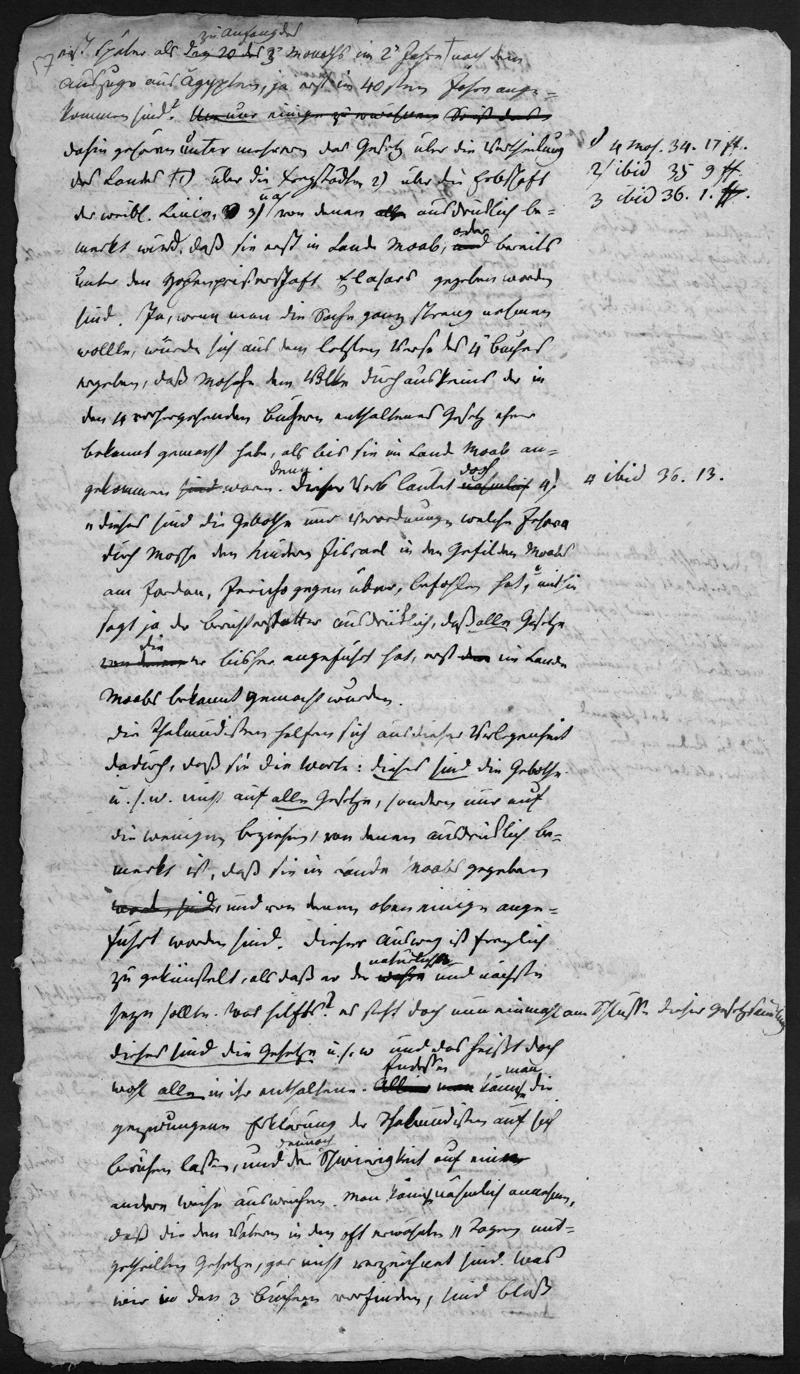 zu Anfang des
57 nicht später als den 20 des 3ᵗ Monaths im 2ᵗ Jahre nach dem
Auszuge aus Ägypten, ja erst im 40sten Jahre ange=
kommen sind. Um nur einige zu erwähnen
dahin gehören unter mehrern das Gesetz über die Vertheilung
1) 4 Mos. 34. 17 ff.
des Landes 1) über die Freystädte 2) über die Erbschaft
2) ibid 35 9 ff.
der weibl. Linien 3) von denen alle ausdrücklich be=
3 ibid 36. 1. ff.
merkt wird, daß sie erst im Lande Moab, oder bereits
unter den Hohenpriesterschaft Elasars gegeben worden
sind. Ja, wenn man die Sache ganz streng nehmen
wollte, würde sich aus dem letzten Verse des 4ᵗ Buches
ergeben, daß Moseh dem Volke durchaus keins der in
den 4 vorhergehenden Büchern enthaltenes Gesetz eher
bekannt gemacht habe, als bis sie im Land Moab an=
gekommen sind waren. denn Dieser Vers lautet doch nähmlich 4)
4 ibid 36. 13.
„dieses sind die Gebothe und Verordnungen welche Jehova
durch Mosse den Kindern Jisrael in den Gefilden Moabs
am Jordan, Jericho gegen über, befohlen hat," mithin
sagt ja der Berichterstatter ausdrücklich, daß alle Gesetze
die
von denen er bisher angeführt hat, erst im Lande
Moabs bekannt gemacht wurden.
Die Thalmudisten helfen sich aus dieser Verlegenheit
dadurch, daß sie die Worte: dieses sind die Gebothe
u.s.w. nicht auf alle Gesetze, sondern nur auf
die wenigen beziehen, von denen ausdrücklich be=
merkt ist, daß sie im Lande Moabs gegeben
word, sind, und von denen oben einige ange=
führt worden sind. Dieser Ausweg ist freylich
natürlichste
zu gekünstelt, als daß er der wahre und nächste
seyn sollte. Was hilfts? es steht doch nun einmahl am Schlusse dieser Gesetzsamlung
dieses sind die Gesetze u.s.w und das heißt doch
Indessen man
wohl alle in ihr enthaltene. Allein man könnte die
gezwungene Erklärung der Thalmudisten auf sich
dennoch
beruhen lassen, und der Schwierigkeit auf eine
andere Weise ausweichen. Man könnte nähmlich annehmen,
daß die den Vätern in den oft erwähnten 11 Tagen mit=
getheilten Gesetze, gar nicht verzeichnet sind. Was
wir in den 3 Büchern vorfinden, sind bloß